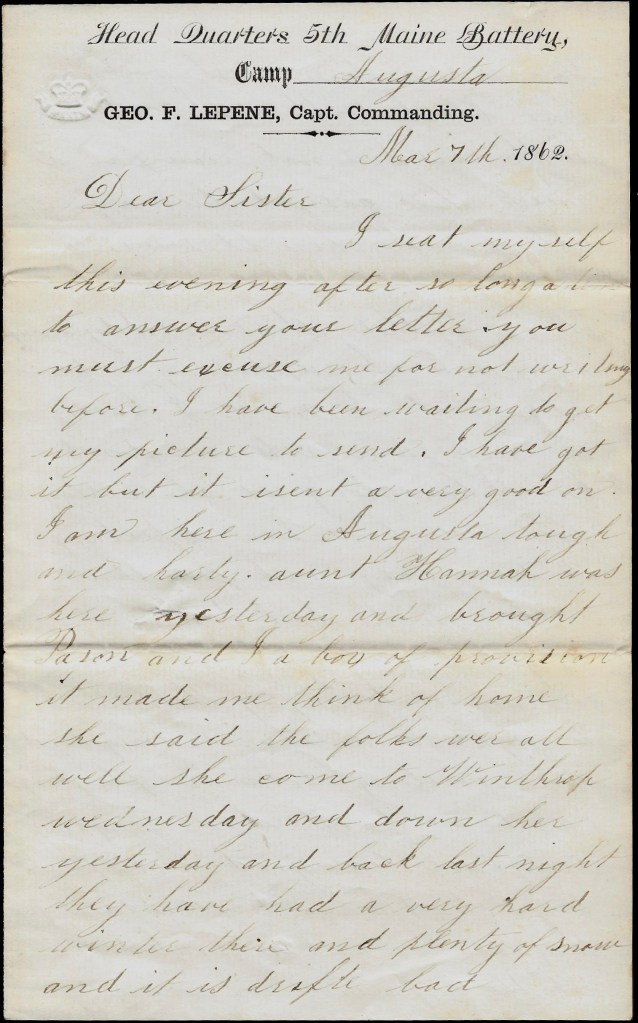 Head Quarters 5th Maine Battery,
Camp Augusta
GEO. F. LEPENE, Capt. Commanding.
Mar 7th. 1862.
Dear Sister
I seat my self
this evening after so long a
to answer your letter. you
must excuse me for not writing
before. I have been waiting to get
my picture to send. I have got
it but it isent a very good on.
I am here in Augusta tough
and harty. aunt Hannah was
here yesterday and brought
and I a box of provision
it made me think of home
she said the folks wer all
well she come to Winthrop
wednesday and down her
yesterday and back last night
they have had a very hard
winter there and plenty of snow
and it is drifte bad